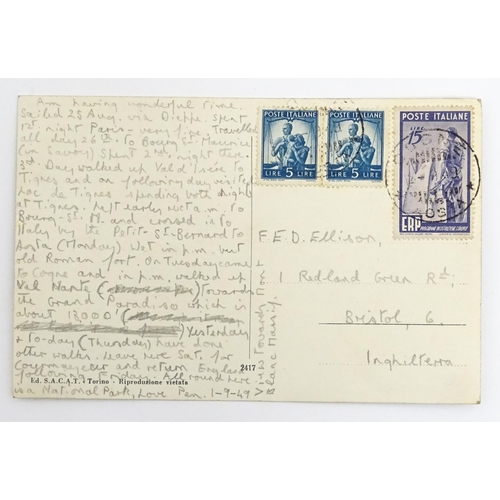 Am having wonderful time.
Sailed 25 Aug. via Dieppe spent
1st. night Paris - very fine. Travelled
all day 26th to Bourg-St-Maurice
(in Savoy) Spent 2nd, night there
3rd. Day walked up Val d'Isère to
Tignes and on following day visited
Lac de Tignes spending both nights
at Tignes. Left early next a.m. to
Bourg-St. M. and crossed into
Italy by the Petit St-Bernard to
Aosta (Monday) Wet in p.m. but
old Roman fort. On Tuesday came
to Cogne and in p.m. walked up
Val Nante towards
the Grand Paradiso which is
about 13,000'
Yesterday
+ to-day (Thursday) have done
other walks. Leave here Sat. for
Courmayeur and return England
following Friday. All round here
is a National Park, Love Pen. 1-9-49
Ed. S.A.C.A.T. - Torino - Riproduzione vietata
2417
View towards Mont
Blanc Massif.
POSTE ITALIANE
LIRE 5 LIRE
POSTE ITALIANE
LIRE 5 LIRE
POSTE ITALIANE
LIRE 15
ERP
COGNE
AOSTA
F.E.D. Ellison,
1 Redland Green Rd;
Bristol, 6.
Inghilterra